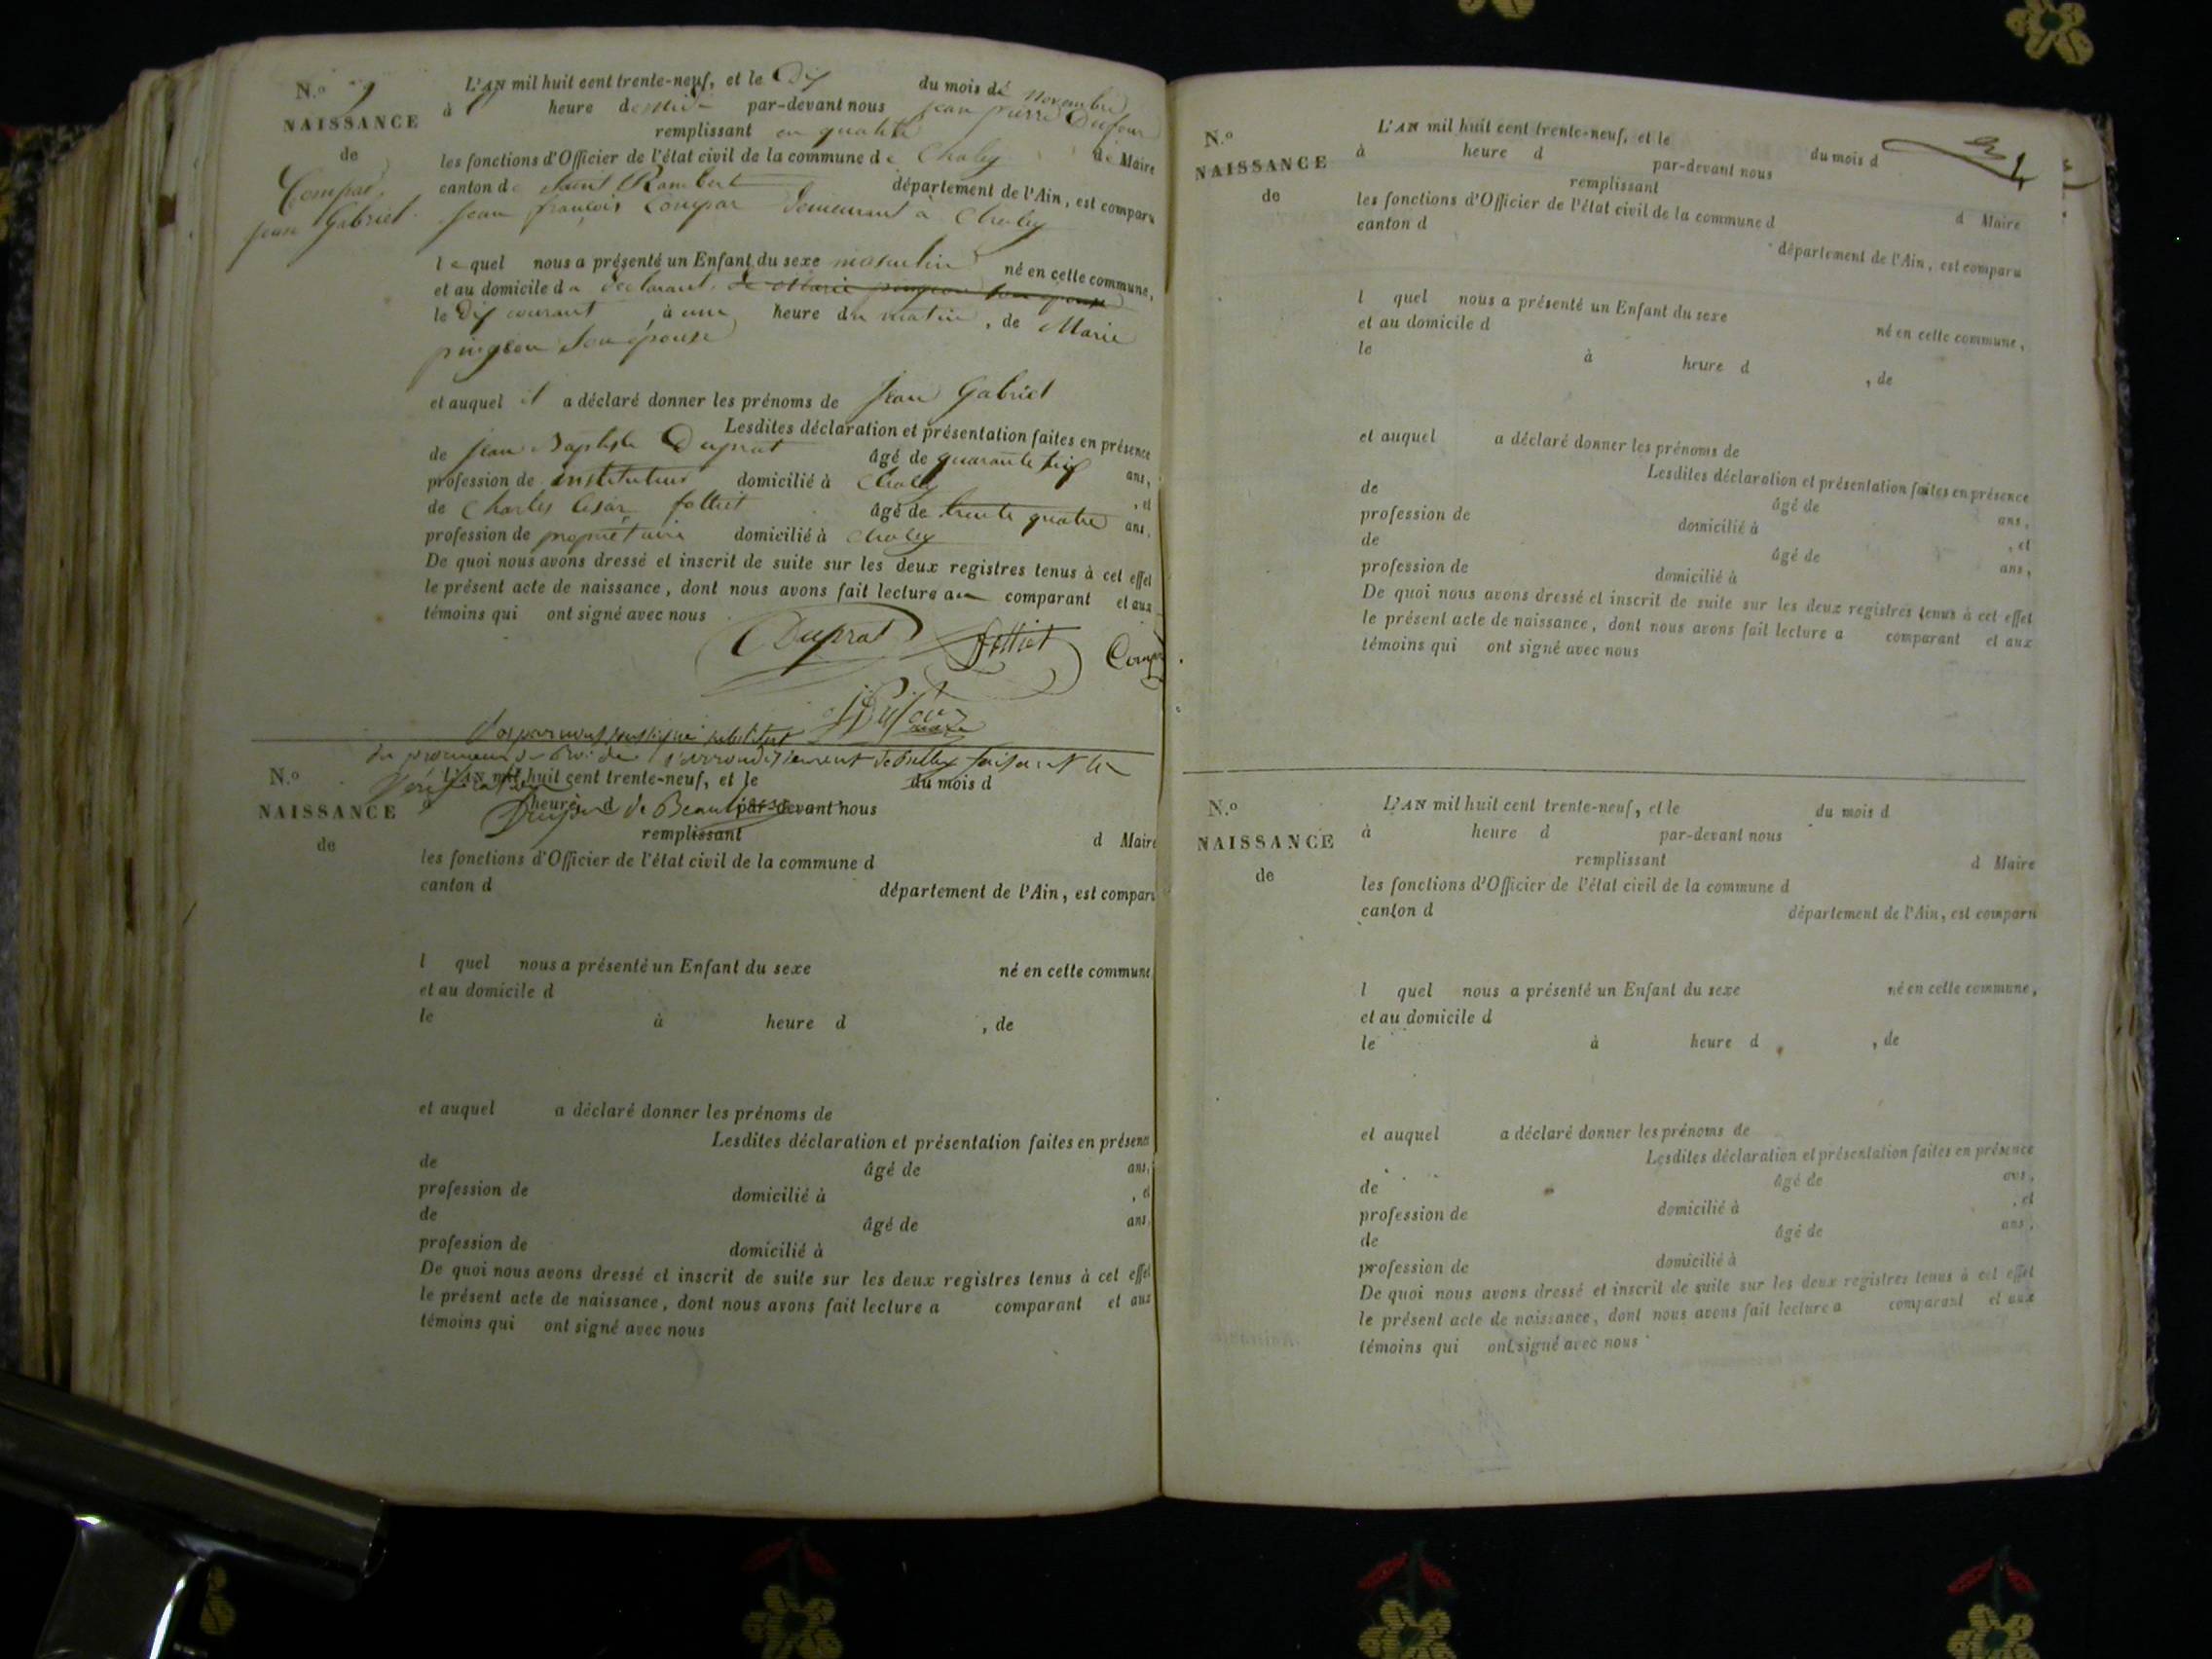 N.o 9
NAISSANCE
de
Compar
Jean Gabriel
L'AN mil huit cent trente-neuf, et le Dix du mois de novembre
à heure de midi par-devant nous jean pierre Dufour
remplissant en qualité de Maire
les fonctions d'Officier de l'état civil de la commune de Chaley
canton de Saint Rambert département de l'Ain, est comparu
Jean françois Compar demeurant à Chaley
lequel nous a présenté un Enfant du sexe masculin né en cette commune,
et au domicile du déclarant. de Marie pingeon son épouse
le Dix courant, à une heure du matin, de Marie
pingeon son épouse
et auquel il a déclaré donner les prénoms de Jean Gabriel
Lesdites déclaration et présentation faites en présence
de Jean Baptiste Duprat âgé de quarante six ans,
profession de instituteur domicilié à Chaley, et
de Charles César fettiet âgé de trente quatre ans,
profession de propriétaire domicilié à Chaley
De quoi nous avons dressé et inscrit de suite sur les deux registres tenus à cet effet
le présent acte de naissance, dont nous avons fait lecture au comparant et aux
témoins qui ont signé avec nous
Duprat fettiet Comp
Dufour
maire
Vu par nous soussigné substitut
du procureur du Roi de l'arrondissement de Belley faisant la
Vérification
N.o
NAISSANCE
de
L'AN mil huit cent trente-neuf, et le du mois d
à heure d par-devant nous
remplissant d Maire
les fonctions d'Officier de l'état civil de la commune d
canton d département de l'Ain, est comparu
l quel nous a présenté un Enfant du sexe né en cette commune
et au domicile d
le à heure d , de
et auquel a déclaré donner les prénoms de
Lesdites déclaration et présentation faites en présence
de âgé de ans,
profession de domicilié à , et
de âgé de ans,
profession de domicilié à
De quoi nous avons dressé et inscrit de suite sur les deux registres tenus à cet effet
le présent acte de naissance, dont nous avons fait lecture a comparant et aux
témoins qui ont signé avec nous
N.o
NAISSANCE
de
L'AN mil huit cent trente-neuf, et le du mois d
à heure d par-devant nous
remplissant d Maire
les fonctions d'Officier de l'état civil de la commune d
canton d département de l'Ain, est comparu
l quel nous a présenté un Enfant du sexe né en cette commune,
et au domicile d
le à heure d , de
et auquel a déclaré donner les prénoms de
Lesdites déclaration et présentation faites en présence
de âgé de ans,
profession de domicilié à , et
de âgé de ans,
profession de domicilié à
De quoi nous avons dressé et inscrit de suite sur les deux registres tenus à cet effet
le présent acte de naissance, dont nous avons fait lecture a comparant et aux
témoins qui ont signé avec nous
N.o
NAISSANCE
de
L'AN mil huit cent trente-neuf, et le du mois d
à heure d par-devant nous
remplissant d Maire
les fonctions d'Officier de l'état civil de la commune d
canton d département de l'Ain, est comparu
l quel nous a présenté un Enfant du sexe né en cette commune,
et au domicile d
le à heure d , de
et auquel a déclaré donner les prénoms de
Lesdites déclaration et présentation faites en présence
de âgé de ans,
profession de domicilié à , et
de âgé de ans,
profession de domicilié à
De quoi nous avons dressé et inscrit de suite sur les deux registres tenus à cet effet
le présent acte de naissance, dont nous avons fait lecture a comparant et aux
témoins qui ont signé avec nous